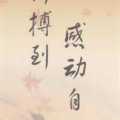 感动自
搏到